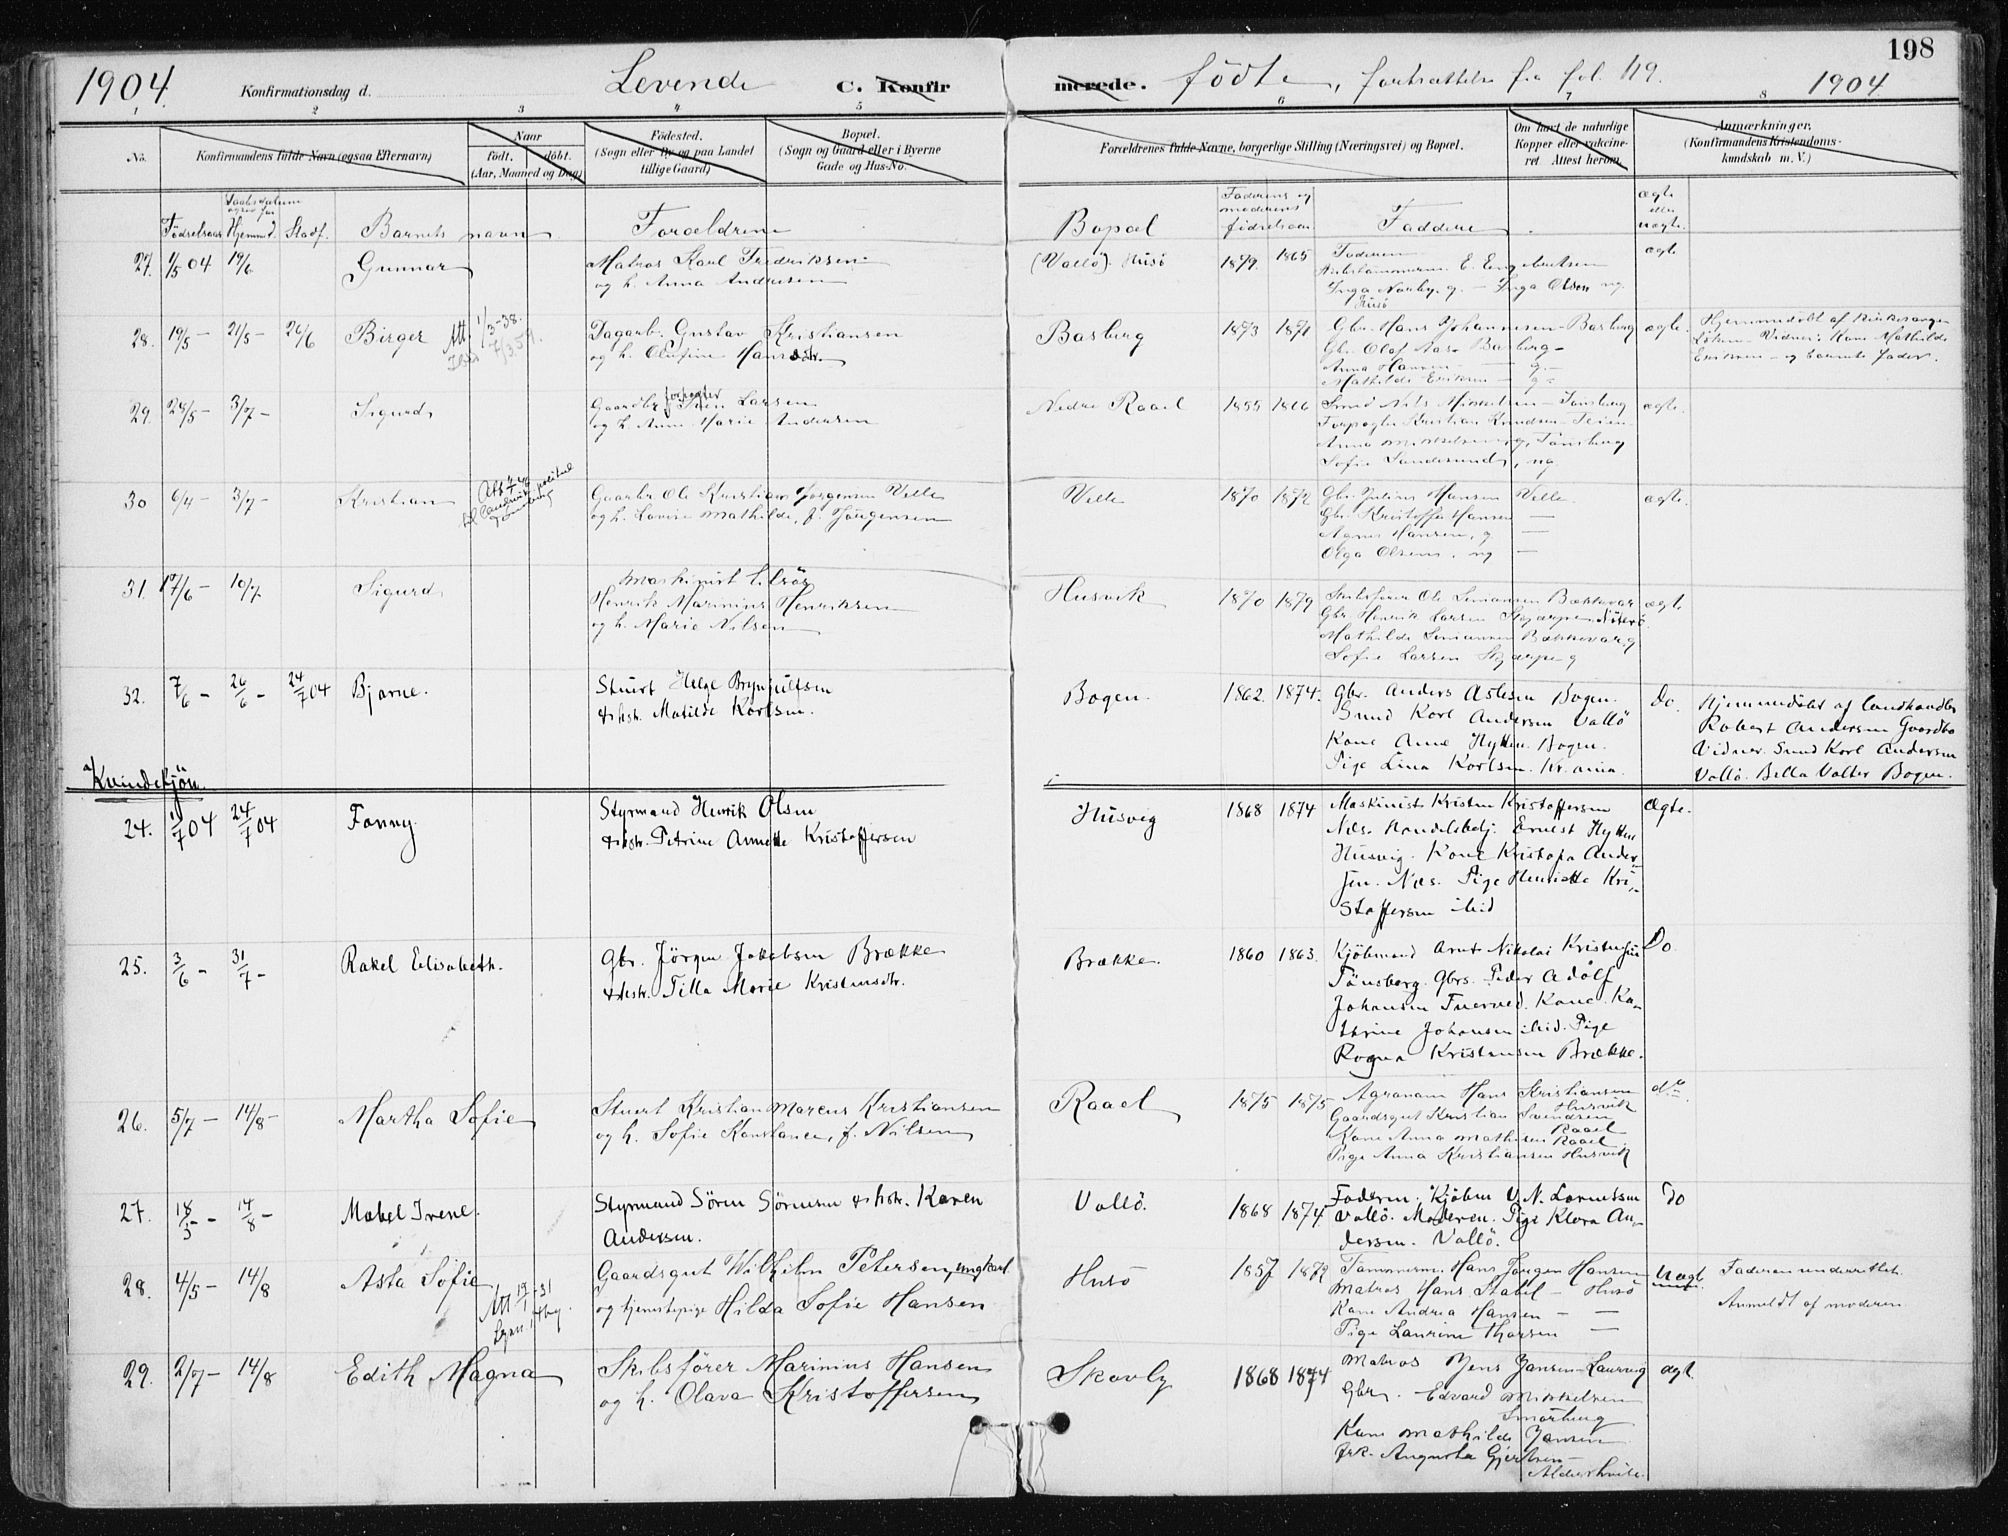 198
1904 Konfirmationsdag d. Levende C. Konfirmerede. födte, fortsættelse fra fol. 119. 1904
1 2 3 4 5 6 7 8
No. Konfirmandens fulde Navn (ogsaa Efternavn) Naar Fødested. Bopæl. Forældrenes fulde Navne, borgerlige Stilling (Næringsvei) og Bopæl. Om havt de naturlige Anmærkninger.
født. døbt. (Sogn eller By og paa Landet (Sogn og Gaard eller i Byerne Kopper eller vaccine- (Konfirmandens Kristendoms-
(Aar, Maaned og Dag) tillige Gaard) Gade og Hus-No. ret Attest herom. kundskab m. V.)
Födselsaar Hjemmed. Stadf. Barnets navn Forældrene Bopæl Faderens og moderens födselsaar Faddere ægte eller uægte.
27. 1/5 04 19/6 Gunnar Matros Karl Fredriksen (Vallö) Husö 1879. 1865 Faderen ægte
og h. Anna Andresen
Inga Norby, g. — Inga Olsen ug.
Husö
28. 19/5 — 21/5 — 26/6 Birger Att. 1/3-38. Dagarb. Gustav Kristiansen Basberg 1873 1871 Gbr. Hans Johannesen Basberg ægte. Hjemmedöbt af kirkesanger
og h. Olufine Hansdtr. Gbr. Olaf Aas Basberg — Vidner: Kone Mathilde
Anna Hansen — g. — Eriksen — og barnets fader.
Mathilde Eriksen — g —
29. 28/5 — 3/7 — Sigurd Gaardbr. forpagter Larsen Nedre Raael 1855 1866 Smed Nils Mikkelsen — Tönsberg ægte.
og h. Anne Marie Andersen Forpagter Kristian Knudsen Teien
Anna Mikkelsen g, Tönsberg
Sofie Sandesund, ug.
30 6/4 — 3/7 — Kristian Gaarbr. Ole Kristian Jörgensen Velle Velle 1870 1872 Gbr. Julius Hansen Velle. ægte.
og h. Lovise Mathilde, f. Jörgensen Gbr. Kristoffer Hansen —
Agnes Hansen, g —
Olga Olsen, ug —
31. 17/6 — 10/7 Sigurd Maskinist tilsös Husvik 1870 1879 Skibsförer Ole Simonsen Bækkevar ægte
Henrik Marinius Henriksen Gbr. Henrik Larsen Skjærpe Nöterö
og h. Marie Nilsen Mathilde Simonsen Bækkevar g
Sofie Larsen Skjærpe g
32. 7/6 — 26/6 — 24/7 04 Bjarne. Stuert Helge Brynjulfsen Bogen. 1862. 1874. Gbr. Anders Aslesen Bogen. Do. Hjemmedöbt af landhandler
& hstr. Matilde Karlsen. Smed Karl Andersen Vallö Robert Andersen Gaardbo
Kone Anne Hytten. Bogen. Vidner. Smed Karl Andersen
Pige Lina Karlsen. Kr.ania. Vallö. Bella Valter Bogen.
Kvindekjön.
24. 1/7 04 24/7 04 Fanny Styrmand Henrik Olsen Husvig 1868 1874 Maskinist Kristen Kristoffersen Ægte.
& hstr. Petrine Annette Kristoffersen Næs. Handelsbetj. Ernest Hytten
Husvig. Kone Kristofa Ander-
sen. Næs. Pige Henriette Kri-
stoffersen ibid
25. 3/6 — 31/7 — Rakel Elisabeth. Gbr. Jörgen Jakobsen Brække Brække. 1860 1863. Kjöbmand Arnt Nikolai Kristensen Do.
& hstr. Tilla Marie Kristensdtr. Tönsberg. Gbrs. Peder Adolf
Johansen Tuerved. Kone Ka-
thrine Johansen ibid. Pige
Ragna Kristensen Brække.
26. 5/7 — 14/8 — Martha Sofie Stuert Kristian Marcus Kristiansen Raael 1875 1875 Agronom Hans Kristiansen Husvik do.
og h. Sofie Konstance, f. Nilsen Gaardsgut Kristian Svendsen Raael
Kone Anna Mathisen Raael
Pige Anna Kristiansen Husvik
27. 18/5 — 14/8 — Mabel Irene. Styrmand Sören Sörensen & hstr. Karen Vallö. 1868 1874 Faderen. Kjöbm V. N. Lorentsen Do
Andersen. Vallö. Moderen. Pige Klara An-
dersen. Vallö.
28. 4/5 — 14/8 Asta Sofie Gaardsgut Wilhelm Petersen, ungkarl Husö 1857 1872 Tömmerm. Hans Jörgen Hansen Uægt. Faderen underrettet.
Att 19/1-31 og tjenestepige Hilda Sofie Hansen Matros Hans Stabel — Husö Anmeldt af moderen
Kone Andrea Hansen — —
Pige Laurine Thorsen —
29. 2/7 — 14/8 Edith Magna Skibsförer Marinius Hansen Skovly 1868 1874 Matros Jens Jansen Laurvig ægt.
og h. Olava Kristoffersen Gbr. Edvard Mikkelsen
Smörberg
Kone Mathilde Jansen
frk. Augusta Gjertsen —